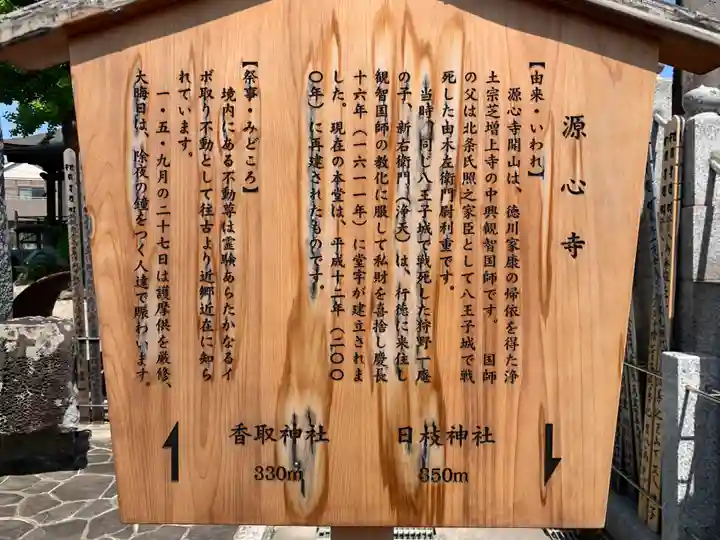 源心寺
【由来・いわれ】
源心寺開山は、徳川家康の帰依を得た浄
土宗芝増上寺の中興観智国師です。 国師
の父は北条氏照之家臣として八王子城で戦
死した由木左衛門尉利重です。
当時、同じ八王子城で戦死した狩野一庵
の子、新右衛門、(浄天)は、行徳に来住し
観智国師の教化に服して私財を喜捨し慶長
十六年(一六一一年)に堂宇が建立されま
した。現在の本堂は、平成十二年(二〇〇
〇年)に再建されたものです。
【祭事・みどころ】
境内にある不動尊は霊験あらたかなるイ
ボ取り不動として往古より近郷近在に知ら
れています。
一・五・九月の二十七日は護摩供を厳修、
大晦日は、除夜の鐘をつく人達で賑わいます。
香取神社
330m
日枝神社
850m